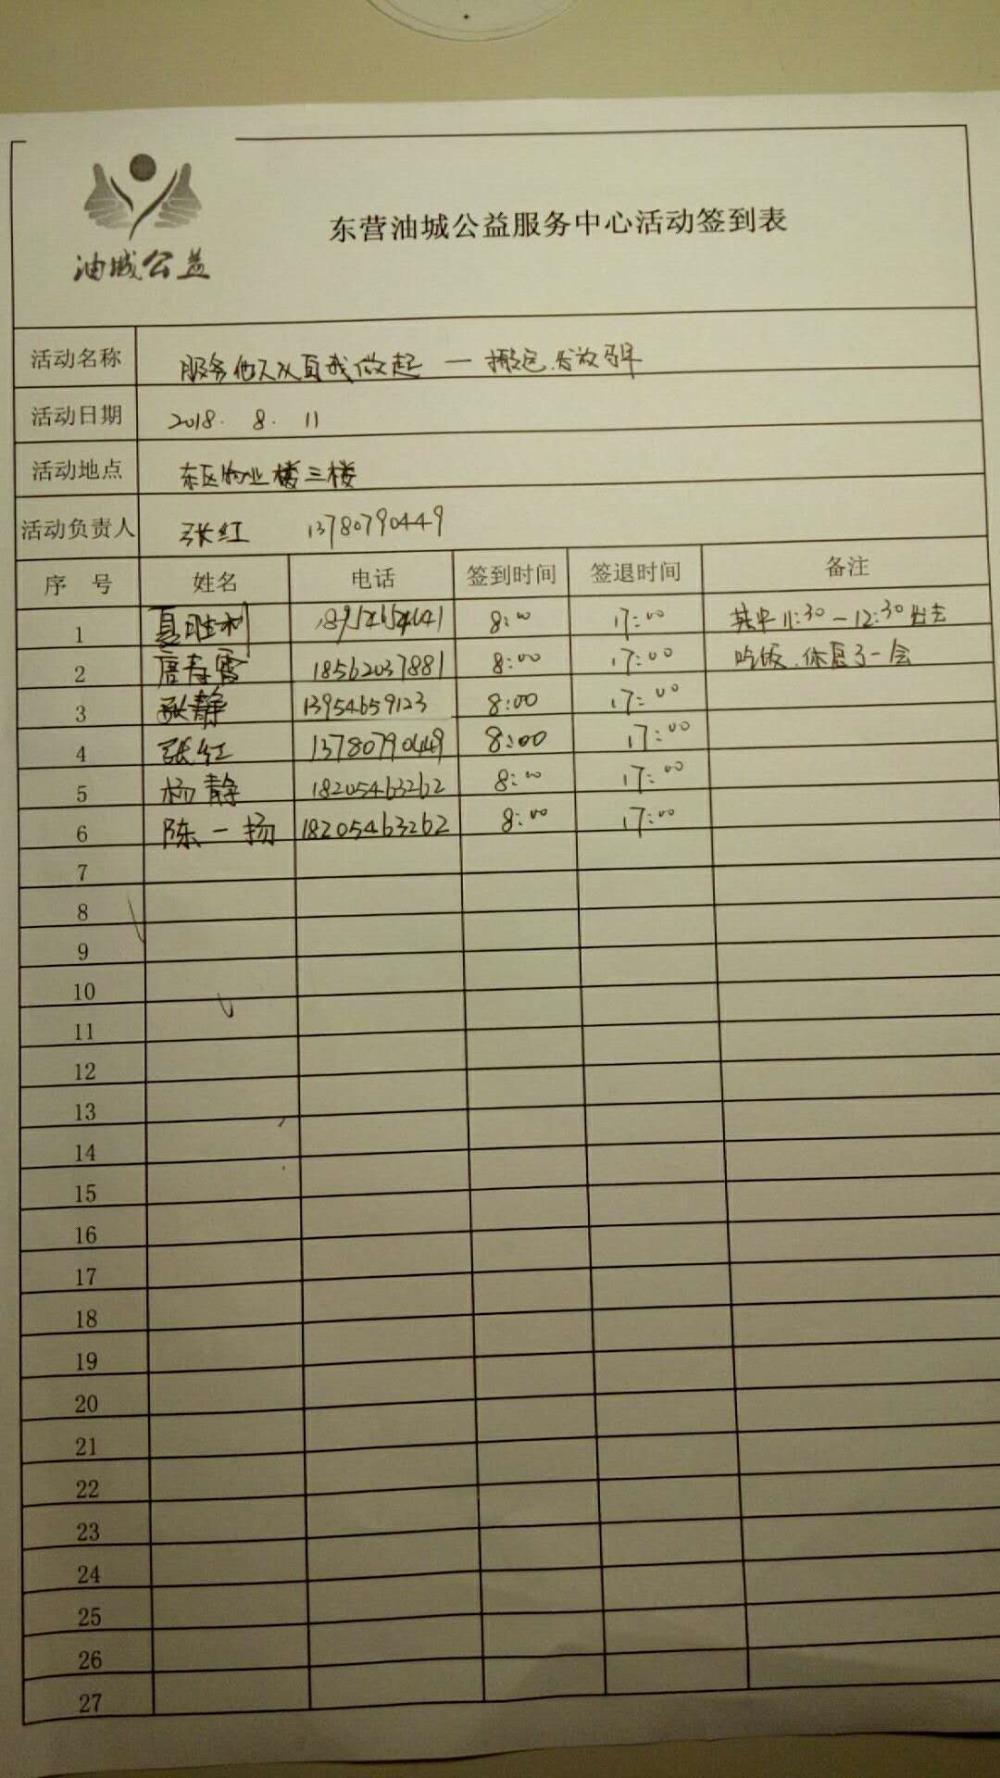 油城公益
东营油城公益服务中心活动签到表
活动名称 服务他人从自我做起 一 搬包.发放
活动日期 2018. 8. 11
活动地点 东区物业楼三楼
活动负责人 张红 13780790449
序 号 姓名 电话 签到时间 签退时间 备注
1 夏胜利 8:00 17:00 其中11:30-12:30出去
2 唐春霄 18562037881 8:00 17:00 吃饭.休息了一会
3 张静 13954659123 8:00 17:00
4 张红 13780790449 8:00 17:00
5 杨静 18205463262 8:00 17:00
6 陈一扬 18205463262 8:00 17:00
7
8
9
10
11
12
13
14
15
16
17
18
19
20
21
22
23
24
25
26
27